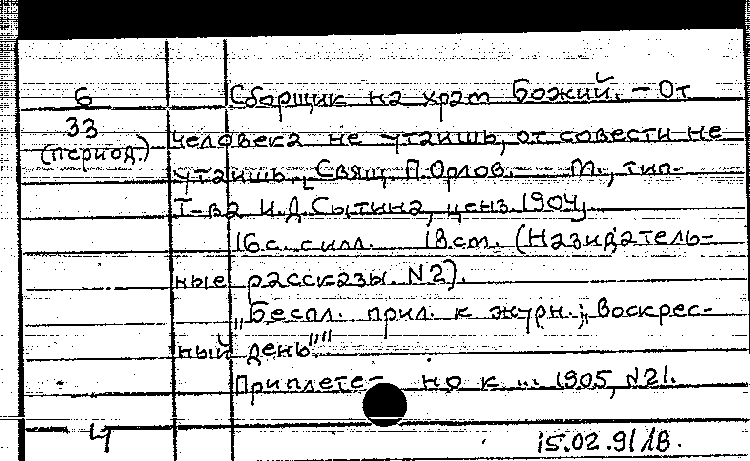 6 Сборщик на храм Божий. – От
33 человека не утаишь, от совести не
(период.) утаишь. [Свящ. П. Орлов. — М., тип-
Т-ва И.Д.Сытина, ценз. 1904.
16 с. илл. 18 см. (Назидатель-
ные рассказы. N2).
„Беспл. прил. к журн.: „Воскрес-
ный день""
Приплете- но к ... 1905, N21.
Ч 15.02.91